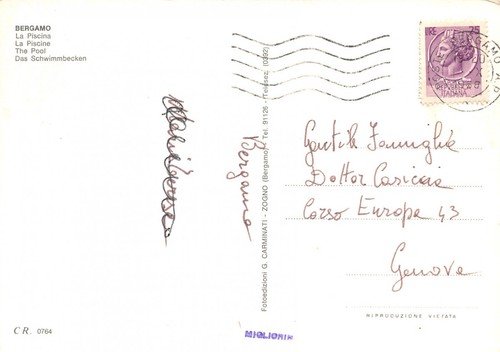 BERGAMO
La Piscina
La Piscine
The Pool
Das Schwimmbecken
LIRE 25
REPUBBLICA
ITALIANA
BERGAMO
Bergamo
Fotoedizioni G. CARMINATI - ZOGNO (Bergamo) - Tel. 91126 - (Telesel. 0392)
Gentile Famiglia
Dottor Casiccia
Corso Europa 43
Genova
RIPRODUZIONE VIETATA
C R. 0764
MIGLIORIN